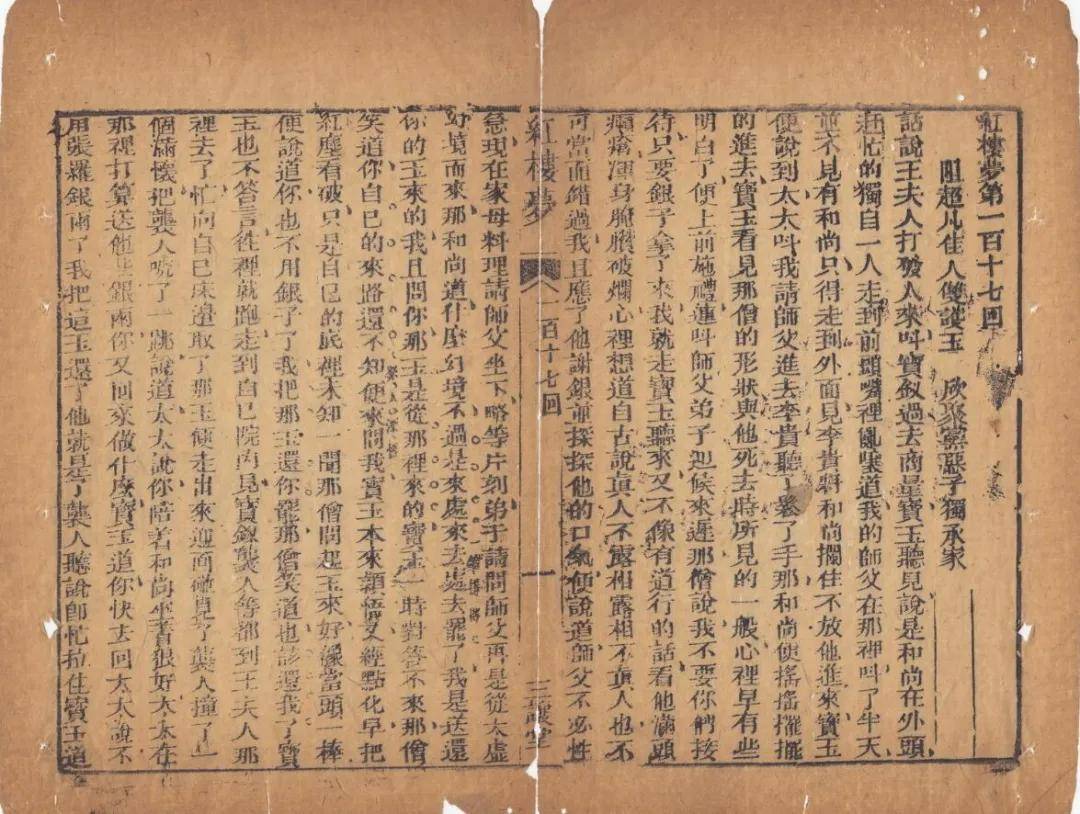 紅樓夢第一百十七回
阻超凡佳人雙護玉　欣聚黨惡子獨承家
話說王夫人打發人來呌寶釵過去商量寶玉聽見說是和尚在外頭
赶忙的獨自一人走到前頭嘴裡亂嚷道我的師父在那裡呌了半天
並不見有和尚只得走到外面見李貴將和尚攔住不放他進來寶玉
便說到太太呌我請師父進去李貴聽了鬆了手那和尚便搖搖擺擺
的進去寶玉看見那僧的形狀與他死去時所見的一般心裡早有些
明白了便上前施禮連呌師父弟子迎候來遲那僧說我不要你們接
待只要銀子拿了來我就走寶玉聽來又不像有道行的話看他滿頭
癩瘡渾身腌臢破爛心裡想道自古說真人不露相露相不真人也不
可當面錯過我且應了他謝銀並探探他的口氣便說道師父不必性
紅樓夢　一百十七回　一　三讓堂
急現在家母料理請師父坐下略等片刻弟子請問師父再是從太虛
幻境而來那和尚道什麼幻境不過是來處來去處去罷了我是送還
你的玉來的我且問你那玉是從那裡來的寶玉一時對答不來那僧
笑道你自己的來路還不知便來問我寶玉本來穎悟又經點化早把
紅塵看破只是自己的底裡未知一聞那僧問起玉來好像當頭一棒
便說道你也不用銀子了我把那玉還你罷那僧笑道也該還我了寶
玉也不答言徃裡就跑走到自己院內見寶釵襲人等都到王夫人那
裡去了忙向自己床邊取了那玉便走出來迎面碰見了襲人撞了一
個滿懷把襲人唬了一跳說道太太說你陪着和尚坐着狠好太太在
那裡打算送他些銀兩你又回來做什麼寶玉道你快去回太太說不
用張羅銀兩了我把這玉還了他就是了襲人聽說即忙拉住寶玉道